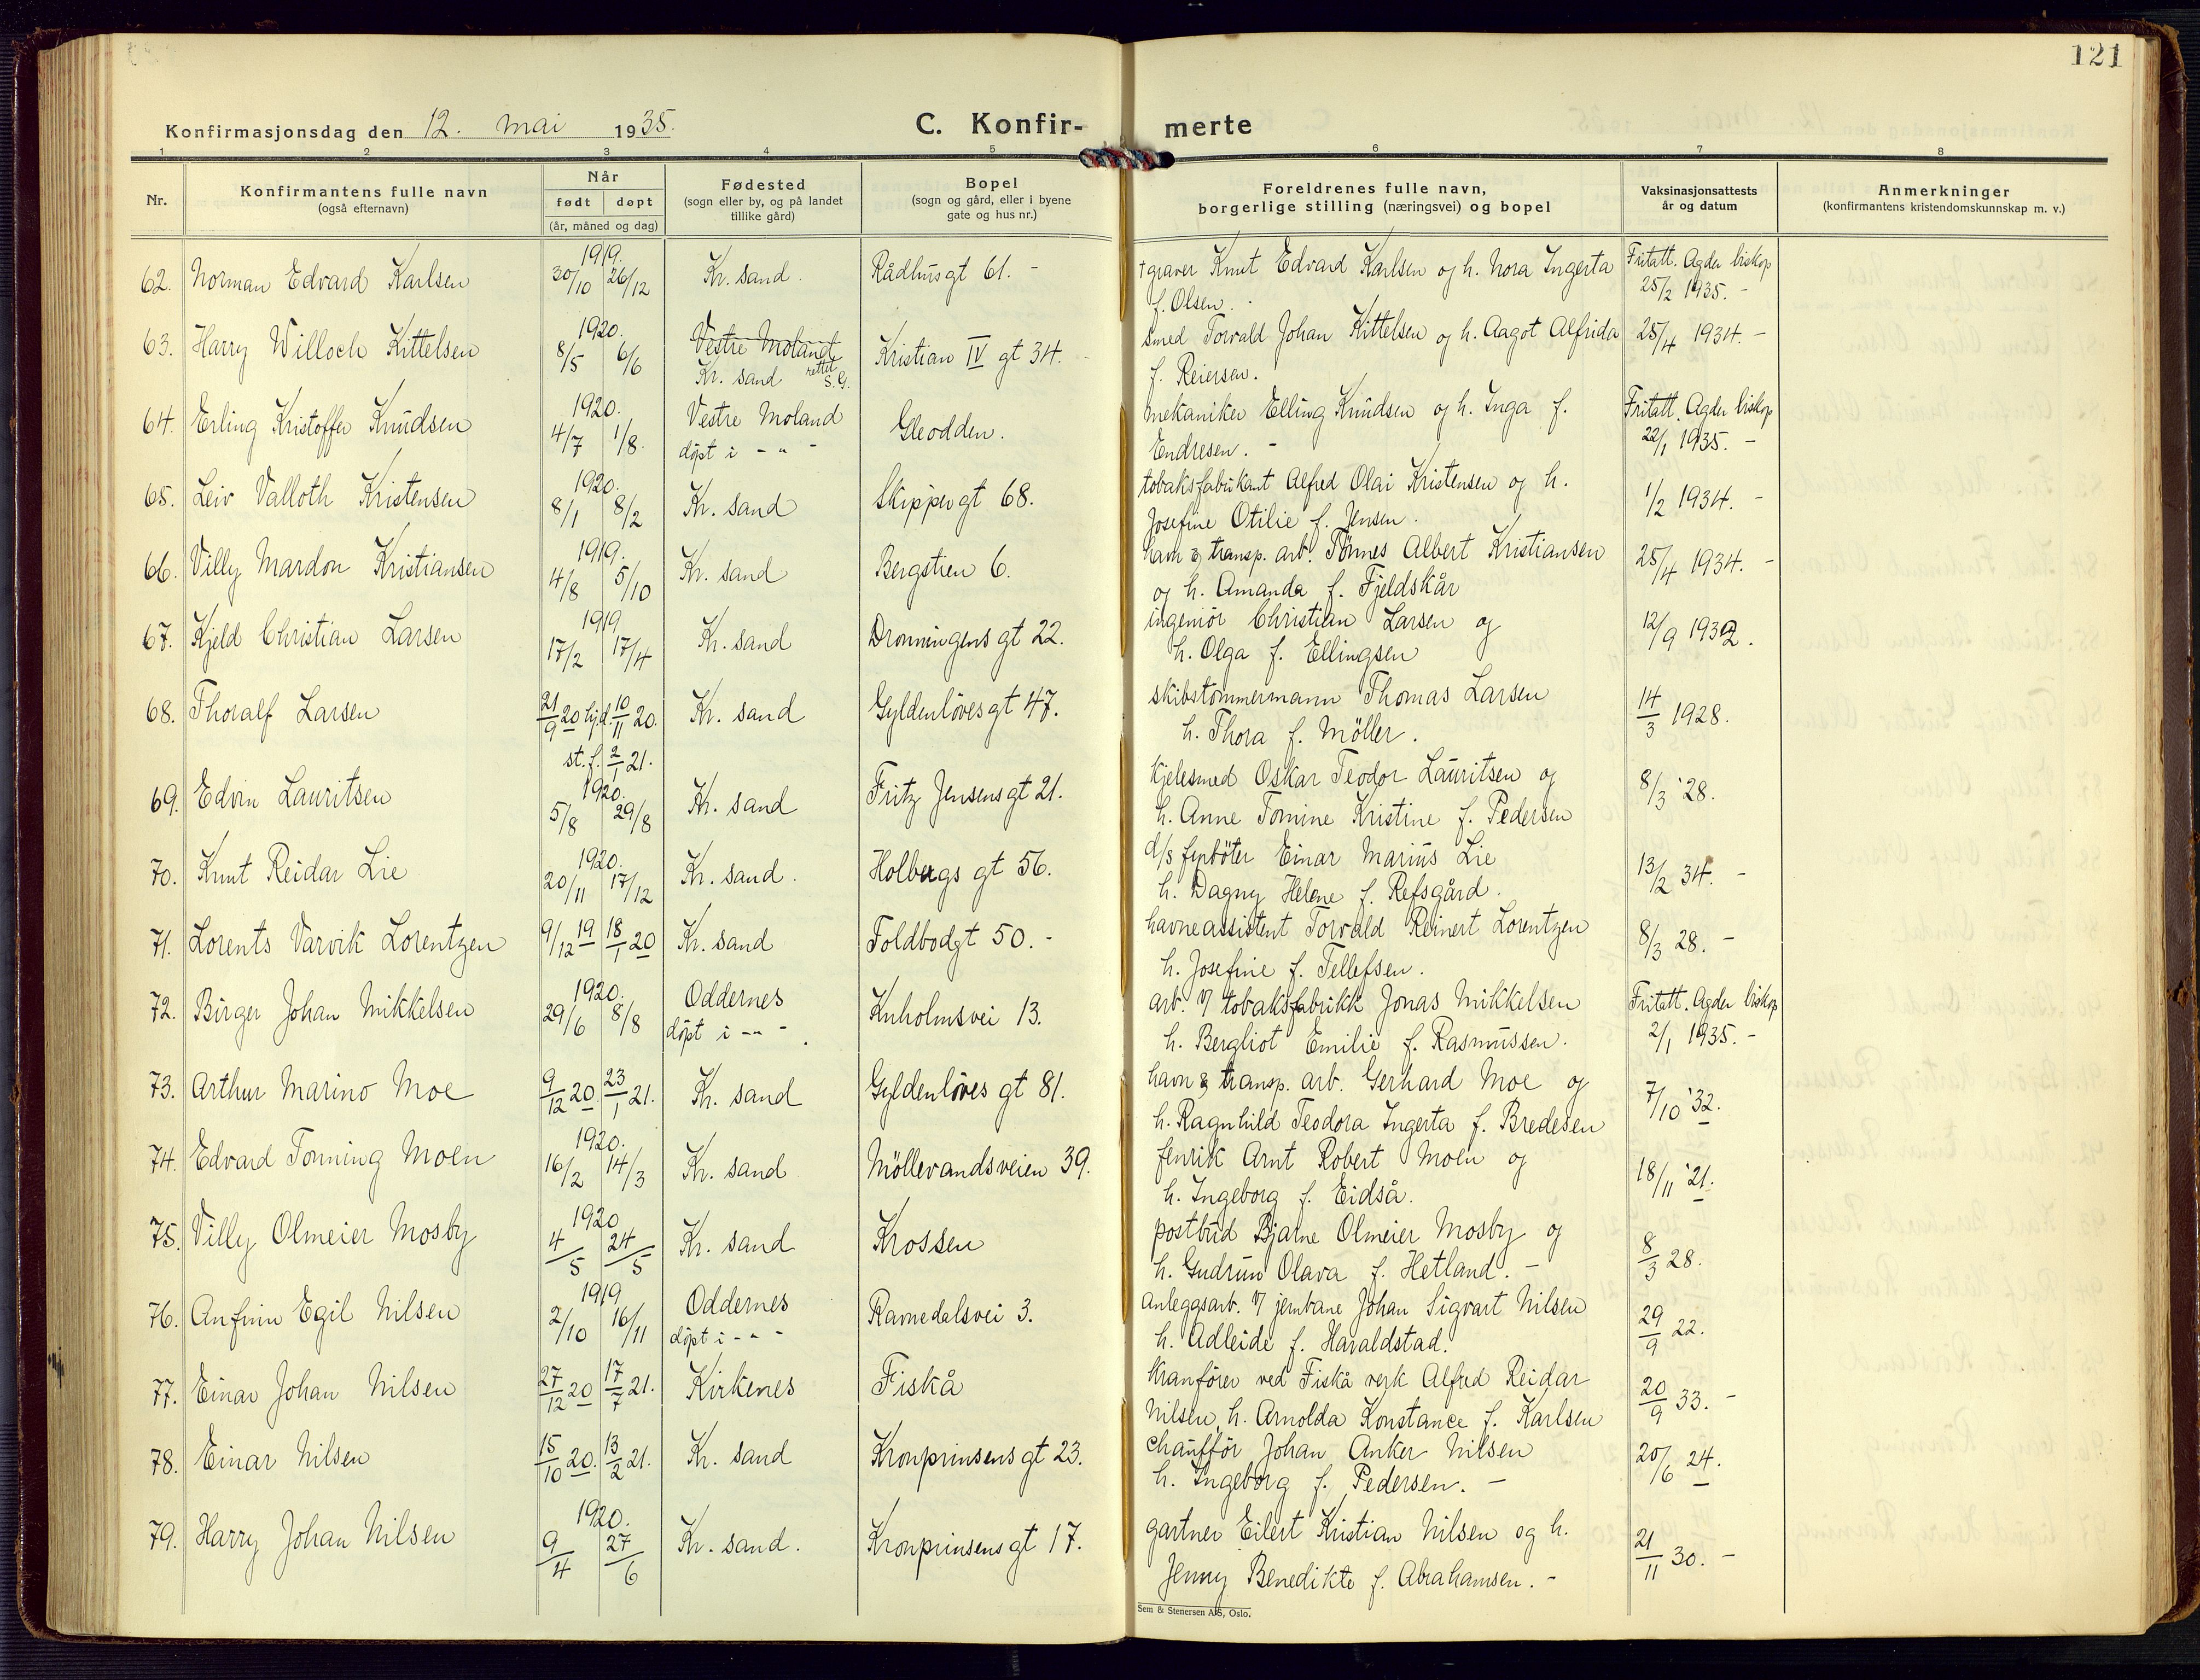 121
Konfirmasjonsdag den 12. mai 1935.
C. Konfirmerte
1 2 3 4 5 6 7 8
Nr.
Konfirmantens fulle navn
(også efternavn)
Når
født døpt
(år, måned og dag)
Fødested
(sogn eller by, og på landet
tillike gård)
Bopel
(sogn og gård, eller i byene
gate og hus nr.)
Foreldrenes fulle navn,
borgerlige stilling (næringsvei) og bopel
Vaksinasjonsattests
år og datum
Anmerkninger
(konfirmantens kristendomskunnskap m. v.)
1919.
62. Norman Edvard Karlsen 30/10 26/12 Kr. sand. Rådhusgt 61. - †graver Knut Edvard Karlsen og h. Nora Ingerta Fritatt. Agder biskop
f. Olsen. 25/2 1935. -
1920.
63. Harry Willoch Kittelsen 8/5 6/6 Vestre Moland Kristian IV gt 34. smed Torvald Johan Kittelsen og h. Aagot Alfrida 25/4 1934. -
Kr. sand rettet S.G. f. Reiersen.
1920.
64. Erling Kristoffer Knudsen 4/7 1/8. Vestre Moland Gleodden. mekaniker Elling Knudsen og h. Inga f. Fritatt. Agder biskop
døpt i - " - Endresen. - 22/1 1935. -
1920.
65. Leiv Valloth Kristensen 8/1 8/2 Kr. sand Skippergt 68. tobaksfabrikant Alfred Olai Kristensen og h. 1/2 1934. -
Josefine Otilie f. Jensen.
1919.
66. Villy Mardon Kristiansen 4/8 5/10 Kr. sand Bergstien 6. havn & transp. arb. Tønnes Albert Kristiansen 25/4 1934. -
og h. Amanda f. Fjeldskår
1919
67. Kjeld Christian Larsen 17/2 17/4 Kr. sand Dronningens gt 22. ingeniör Christian Larsen og 12/9 1932.
h. Olga f. Ellingsen
68. Thoralf Larsen 21/9 20 hjd. 10/11 20. Kr. sand Gyldenlövesgt 47. skibstömmermann Thomas Larsen 14/3 1928.
st. f. 2/1 21. h. Thora f. Möller.
1920.
69. Edvin Lauritsen 5/8 29/8 Kr. sand Fritz Jensens gt 21. kjelesmed Oskar Teodor Lauritsen og 8/3 '28.
h. Anne Tomine Kristine f. Pedersen
1920.
70. Knut Reidar Lie 20/11 17/12 Kr. sand. Holbergs gt 56. d/s fyrböter Einar Marius Lie 13/2 34. -
h. Dagny Helene f. Refsgård.
71. Lorents Varvik Lorentzen 9/12 19 18/1 20 Kr. sand Toldbodgt 50. - havneassistent Torvald Reinert Lorentzen 8/3 28. -
h. Josefine f. Tellefsen.
1920.
72. Birger Johan Mikkelsen 29/6 8/8 Oddernes Kuholmsvei 13. arb. v/ tobaksfabrikk Jonas Mikkelsen Fritatt. Agder biskop
døpt i - " - h. Bergliot Emilie f. Rasmussen. 2/1 1935. -
73. Arthur Marino Moe 9/12 20. 23/1 21. Kr. sand Gyldenlöves gt 81. havn & transp. arb. Gerhard Moe og 7/10 '32.
h. Ragnhild Teodora Ingerta f. Bredesen
1920.
74. Edvard Tonning Moen 16/2 14/3 Kr. sand Möllevandsveien 39. fenrik Arnt Robert Moen og 18/11 '21.
h. Ingeborg f. Eidså.
1920
75. Villy Olmeier Mosby 4/5 24/5 Kr. sand Krossen postbud Bjarne Olmeier Mosby og 8/3 28.
h. Gudrun Olava f. Hetland. -
1919
76. Anfinn Egil Nilsen 2/10 16/11 Oddernes Ravnedalsvei 3. anleggsarb. v/ jernbane Johan Sigvart Nilsen 29/9 22.
døpt i - " - h. Adleide f. Haraldstad.
77. Einar Johan Nilsen 27/12 20 17/7 21. Kirkenes Fiskå kranförer ved Fiskå verk Alfred Reidar 20/9 33. -
Nilsen, h. Arnolda Konstance f. Karlsen
78. Einar Nilsen 15/10 20. 13/2 21. Kr. sand Kronprinsens gt 23. chauffør Johan Anker Nilsen 20/6 24.
h. Ingeborg f. Pedersen. -
1920.
79. Harry Johan Nilsen 9/4 27/6 Kr. sand. Kronprinsens gt 17. gartner Eilert Kristian Nilsen og h. 21/11 30. -
Jenny Benedikte f. Abrahamsen. -
Sem & Stenersen A/S, Oslo.